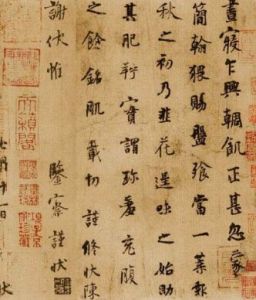 晝寢乍興輖飢正甚忽蒙
簡翰猥賜盤飧當一葉報
秋之初乃韭花逞味之始助
其肥羜實謂珍羞充腹
之餘銘肌載切謹修狀陳
謝伏惟 鑒察謹狀
七月十一日 狀
天籟閣